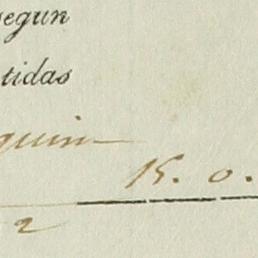 segun
tidas
quin
15. 0.
2